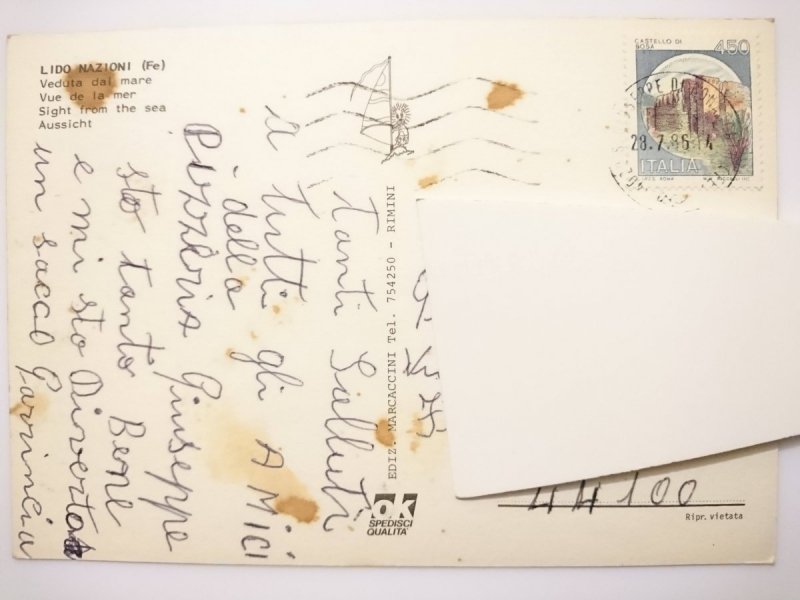 LIDO NAZIONI (Fe)
Veduta dal mare
Vue de la mer
Sight from the sea
Aussicht
CASTELLO DI
BOSA
450
28.7.86-14
ITALIA
I.P.Z.S. ROMA
tanti Salluti
a tutti gli AMICI
della
Pizzeria Giuseppe
sto tanto Bene
e mi sto Divertendo
un sacco Garrincia
EDIZ. MARCACCINI Tel. 754250 - RIMINI
ok
SPEDISCI
QUALITA'
44100
Ripr. vietata